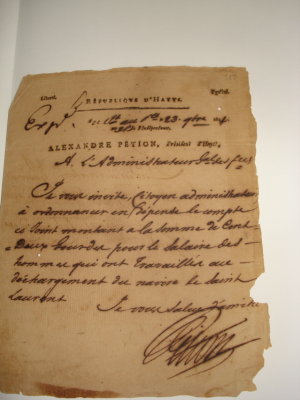 Liberté. Egalité.
RÉPUBLIQUE D'HAYTI.
Au Port-au-Prince, 23
d'Indépendance.
ALEXANDRE PÉTION, Président d'Hayti,
A L'Administrateur
Je vous invite, Citoyen administrateur
à ordonnancer en dépense le compte
ci Joint montant à la somme de Cent
Deux Gourdes pour le Salaire des
hommes qui ont Travaillés au
déchargement du navire le Saint
Laurent
Je vous Salue d'amitié
Pétion